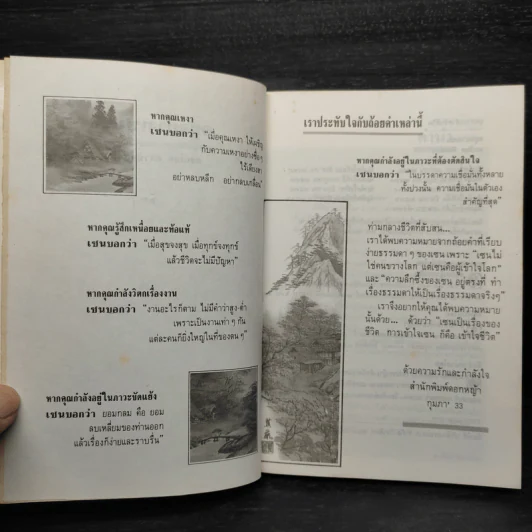 หากคุณเหงา
เซนบอกว่า "เมื่อคุณเหงา ให้เผชิญ
กับความเหงาอย่างชื่นๆ
ไร้เดียงสา
อย่าหลบหลีก อย่ากลบเกลื่อน"
หากคุณรู้สึกเหนื่อยและท้อแท้
เซนบอกว่า "เมื่อสุขจงสุข เมื่อทุกข์จงทุกข์
แล้วชีวิตจะไม่มีปัญหา"
หากคุณกำลังวิตกเรื่องงาน
เซนบอกว่า "งานอะไรก็ตาม ไม่มีคำว่าสูง-ต่ำ
เพราะเป็นงานเท่า ๆ กัน
แต่ละคนก็ยิ่งใหญ่ในที่ของตน ๆ"
หากคุณกำลังอยู่ในภาวะขัดแย้ง
เซนบอกว่า ยอมกลม คือ ยอม
ลบเหลี่ยมของท่านออก
แล้วเรื่องก็ง่ายและราบรื่น"
เราประทับใจกับถ้อยคำเหล่านี้
หากคุณกำลังอยู่ในภาวะที่ต้องตัดสินใจ
เซนบอกว่า "ในบรรดาความเชื่อมั่นทั้งหลาย
ทั้งปวงนั้น ความเชื่อมั่นในตัวเอง
สำคัญที่สุด"
ท่ามกลางชีวิตที่สับสน...
เราได้พบความหมายจากถ้อยคำที่เรียบ
ง่ายธรรมดา ๆ ของเซน เพราะ "เซนไม่
ใช่คนขวางโลก แต่เซนคือผู้เข้าใจโลก"
และ "ความลึกซึ้งของเซน อยู่ตรงที่ ทำ
เรื่องธรรมดาให้เป็นเรื่องธรรมดาจริงๆ"
เราจึงอยากให้คุณได้พบความหมาย
นั้นด้วย... ด้วยว่า "เซนเป็นเรื่องของ
ชีวิต การเข้าใจเซน ก็คือ เข้าใจชีวิต"
ด้วยความรักและกำลังใจ
สำนักพิมพ์ดอกหญ้า
กุมภา' 33